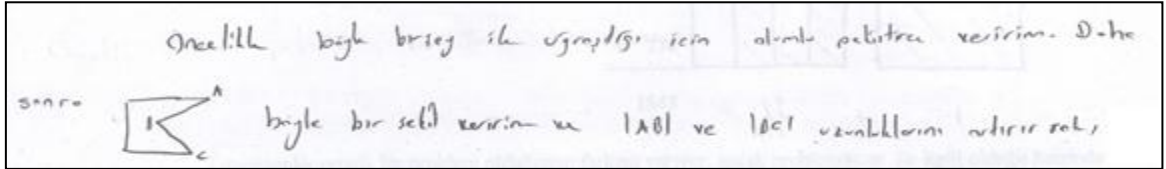 Öncelikle böyle birşey ile uğraştığı için olumlu pekiştireç veririm. Daha
sonra A B C böyle bir şekil veririm ve |AB| ve |BC| uzunluklarını artırırsak,